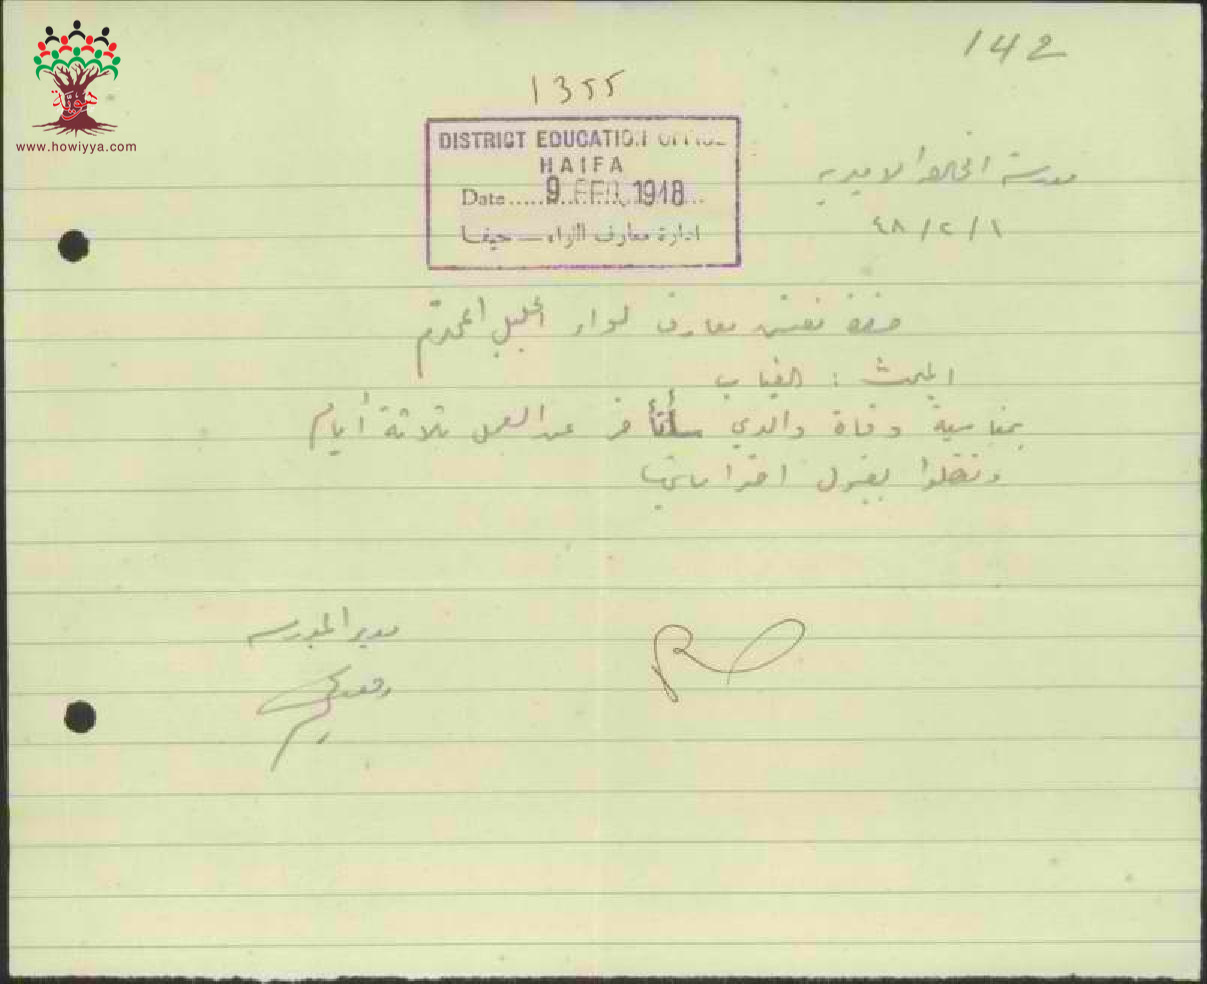 142
1355
هوية
www.howiyya.com
DISTRICT EDUCATION OFFICE
HAIFA
Date ..... 9 FEB 1948 ...
ادارة معارف اللواء — حيفا
مدرسة الاميرية
٤٨/٢/١
حضرة مفتش معارف لواء الجليل المحترم
البحث : الغياب
بمناسبة وفاة والدي سأتأخر عن العمل ثلاثة أيام
وتفضلوا بقبول احتراماتي
مدير المدرسة